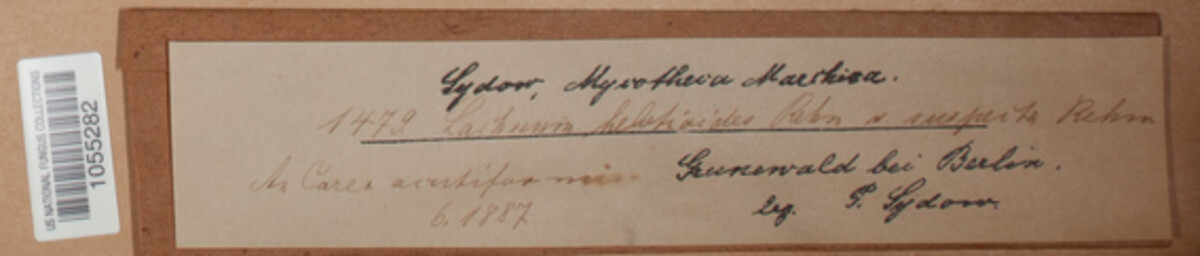 US NATIONAL FUNGUS COLLECTIONS
1055282
Sydow, Mycotheca Marchica.
1479. Lachnum helotioides Rehm v. suspecta Rehm
An Carex acutiformis.
Grunewald bei Berlin.
6. 1887
leg. P. Sydow.